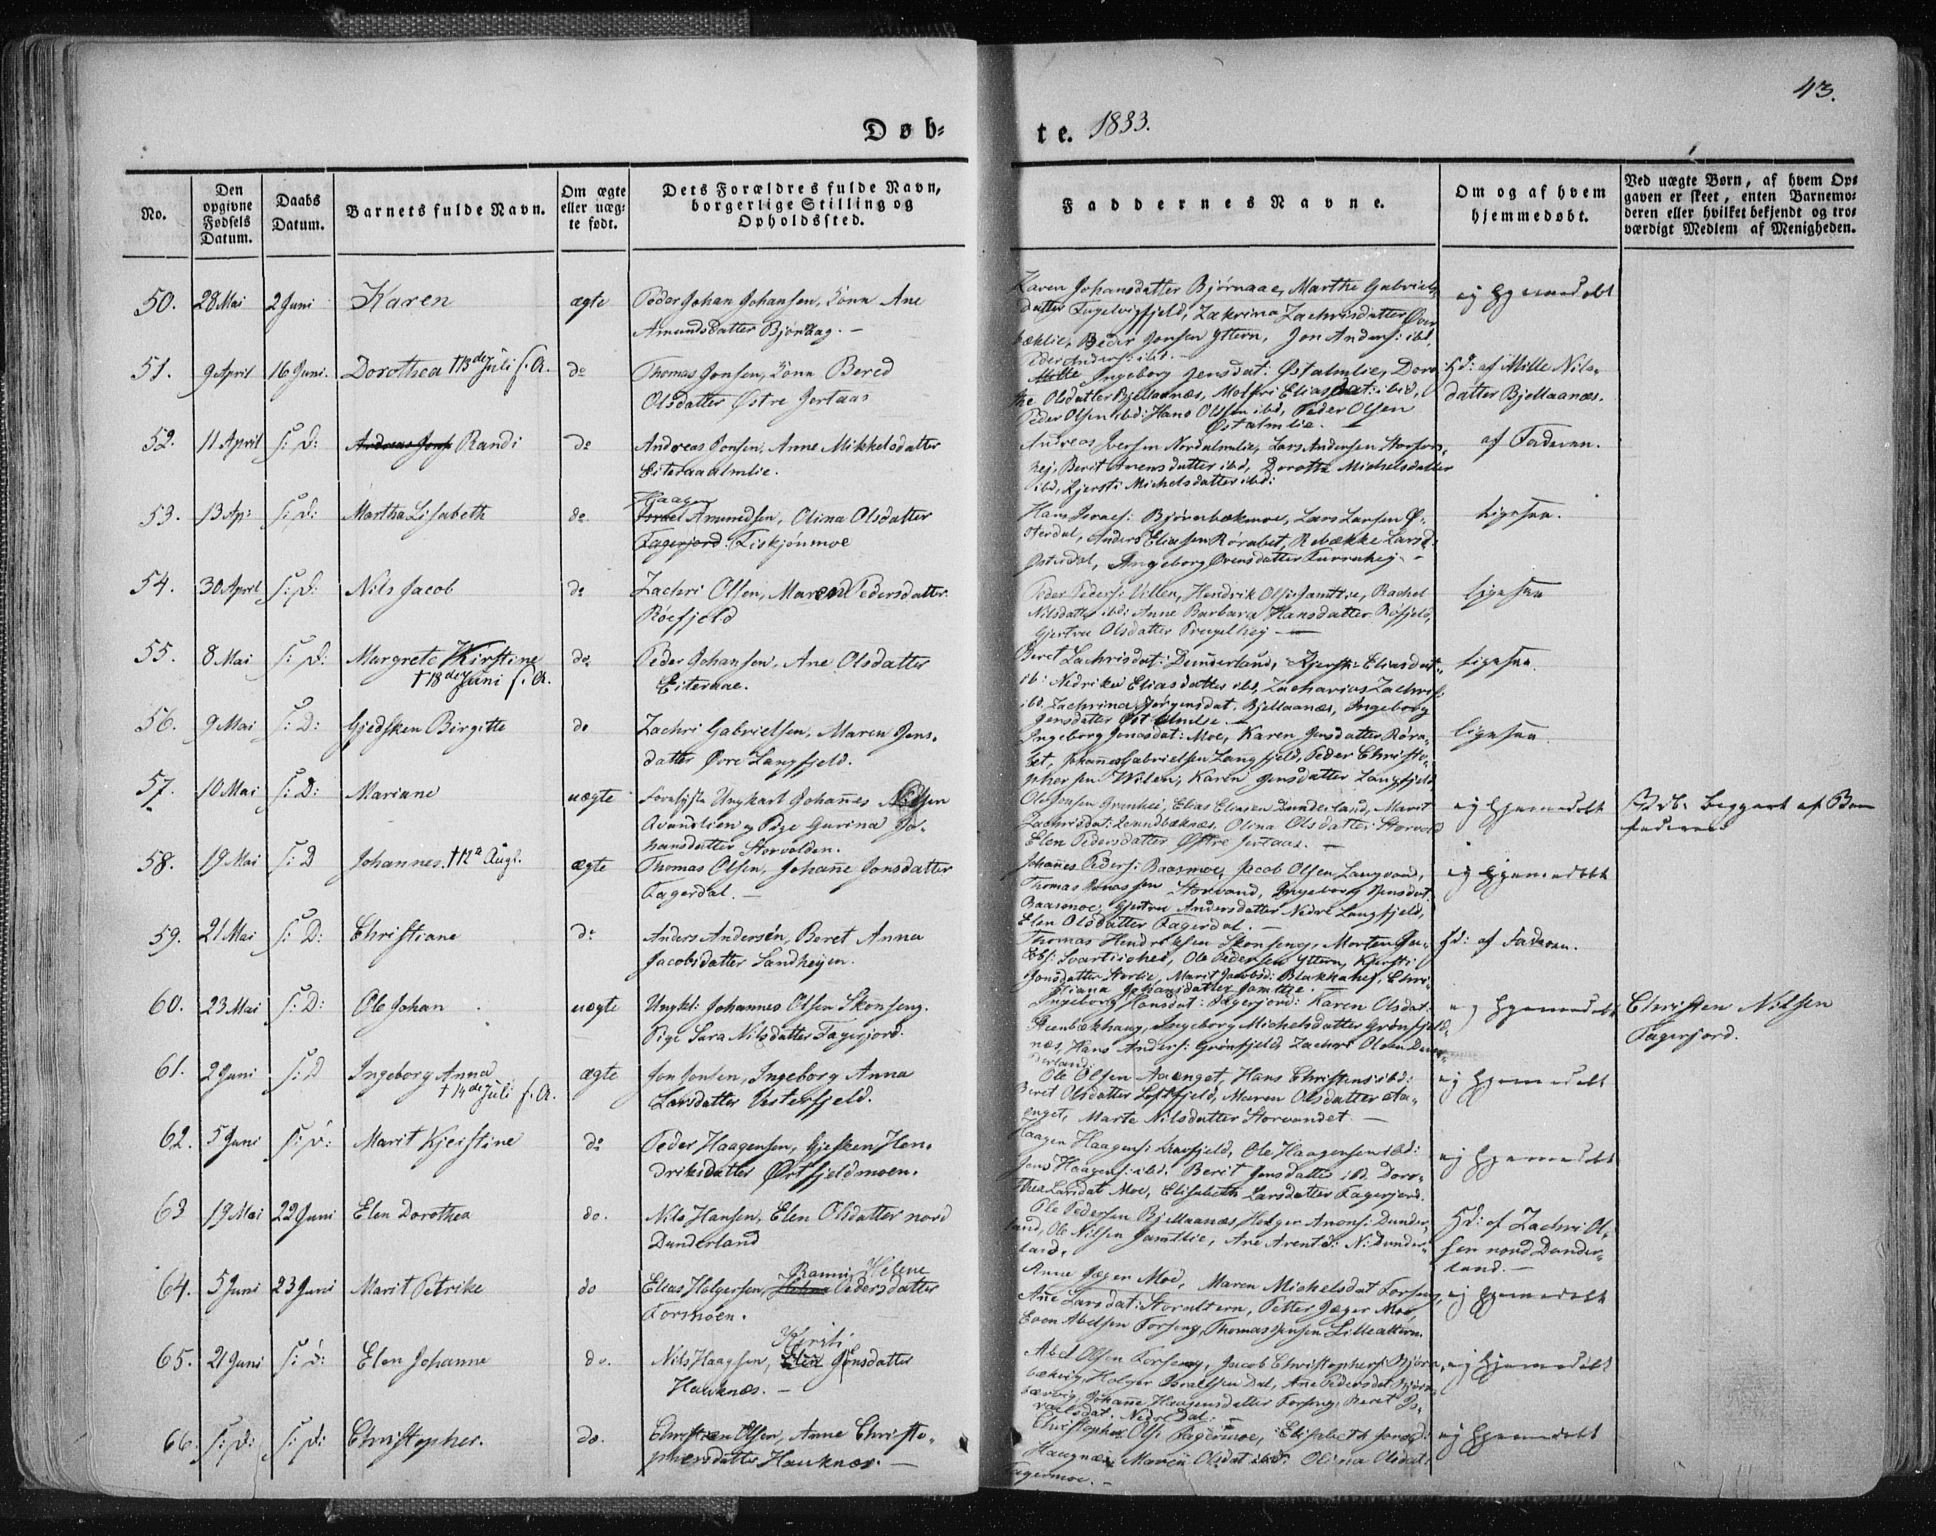 43.
Døb-
te. 1833.
No.
Den opgivne Fødsels Datum.
Daabs Datum.
Barnets fulde Navn.
Om ægte eller uægte født.
Dets Forældres fulde Navn, borgerlige Stilling og Opholdssted.
Faddernes Navne.
Om og af hvem hjemmedøbt.
Ved uægte Børn, af hvem Opgaven er skeet, enten Barnemoderen eller hvilket bekjendt og troværdigt Medlem af Menigheden.
50. 28 Mai 2 Juni Karen ægte Peder Johan Johansen, Kona Ane
Amundsdatter
Karen Johansdatter Bjørnaae, Marthe Gabriels-
datter Zachrisdatter Øver
Peder Jonsen Yttern, Jon Anders: ibd.
ej hjemmedøbt
51. 9 April 16 Juni. Dorothea † 13de Juli s. A. do Thomas Jonsen, Kona Bered
Olsdatter Østre Jertaas
Peder Anders: ibd. -
Ingeborg Jensdat: Østalmlie, Doro-
the Olsdatter Bjellaanæs, Eliasdat: ibid,
Peder Olsen ibd: Hans Olsen ibd, Peder Olsen
Østalmlie. -
Hd: af Mille Nils-
datter Bjellaanæs.
52. 11 April s: D: Randi do Andreas Jonsen, Anne Mikkelsdatter
Eiteraaalmlie.
Andreas Iversen Nordalmlie, Lars Andersen
Berit datter ibd, Dorothe Michelsdatter
ibd, Kjersti Michelsdatter ibd:
af Faderen.
53. 13 Ap: s: D: Martha Lisabeth do. Haagen
Amundsen, Olina Olsdatter
Fagerjord: Fiskjønmoe
Hans Bjørnbækmoe, Lars Larsen Ø-
sterdal, Anders Eliasen Rørabet, Rebække Larsd:
Østerdal, Ingeborg datter
ligesaa.
54. 30 April s: D: Nils Jacob do Zachri Olsen, Maren Pedersdatter
Røefjeld
Peder Peders: Villen, Hendrik Ols: Jamtlie, Rachel
Nilsdatter ibd: Anne Barbara Hansdatter Røfjeld,
Gjertru Olsdatter
ligesaa
55. 8 Mai s: D: Margrete Kirstine
† 18de Juni s. A.
do. Peder Johansen, Ane Olsdatter
Eiteraae.
Beret Zachrisdat: Dunderland, Kjersti: Eliasdat:
ib: Eliasdatter ibd, Zacharias Zachris:
ibd. Zachrina Jørgensdat. Bjellaanæs, Ingeborg
Jensdatter
ligesaa.
56. 9 Mai s: D: Gjedsken Birgitte do Zachri Gabrielsen, Maren Jens-
datter Øvre Langfjeld.
Ingeborg Jonasdat: Moe, Karen Jensdatter Røra-
bet, Johannes Gabrielsen Langfjeld, Peder Christo-
phersen Wilen, Karen Jensdatter Langfjeld
ligesaa.
57. 10 Mai s: D: Mariane uægte Ungkarl Johannes
Pige Gurina Jo-
hansdatter Storvolden.
Ole Jonsen Grønhei, Elias Eliasen Dunderland, Marit
Zachrisdat: Olina Olsdatter
Elen Pedersdatter Østre Jertaas. -
ej hjemmedøbt
Beggart af Bar
faderen
58. 19 Mai s: D Johannes. † 12te Aug. ægte Thomas Olsen, Johanne Jonsdatter
Fagerdal. -
Johannes Peders: Baasmoe, Jacob Olsen Langvand,
Thomas Storvand, Ingeborg Jensdat.
Baasmoe, Gjertru Andersdatter Nedre Langfjeld,
Elen Olsdatter Fagerdal. -
ej hjemmedøbt
59. 21 Mai s: D: Christiane do Anders Andersen, Beret Anna
Jacobsdatter Sandheien.
Thomas Hendriksen Skonseng, Morten
Ole Pedersen Yttern, Kjersti
Jonsdatter Storlie, Marit Jacobsd: Blakkahei, Chri-
stiana Johansdatter Jamtlie. -
Hd: af Faderen.
60. 23 Mai s: D: Ole Johan uægte Ungkl: Johannes Olsen Skonseng.
Pige Sara Nilsdatter Fagerjord.
Ingeborg Hansdat: Fagerjord: Karen Olsdat.
Steenbækhaug, Ingeborg Michelsdatter Grønfjeld-
næs, Hans Anders: Grønfjeld, Zachri Olsen Dun-
derland:
ej hjemmedøbt
Christen Nilsen
Fagerjord.
61. 2 Juni s: D Ingeborg Anna
† 14de Juli s. A.
ægte Jon Jonsen, Ingeborg Anna
Larsdatter Vesterfjeld.
Ole Olsen Aaenget, Hans Christens: ibd:
Beret Olsdatter Maren Olsdatter Aa-
enget, Marte Nilsdatter Storvandet. -
ej hjemmedøbt
62. 5 Juni s: D: Marit Kjerstine do Peder Haagensen, Gjesken Hen-
driksdatter Ørtfjeldmoen.
Haagen Haagens: Ole Haagensen ibd:
Jens Haagens: ibd. Berit Jensdatter ibd. Doro-
thea Larsdat Moe, Elisabeth Larsdatter Fagerjord.
ej hjemmedøbt
63 19 Mai 22 Juni Elen Dorothea do. Nils Hansen, Elen Olsdatter nord
Dunderland
Ole Pedersen Bjellaanæs, Holger Dunder-
land, Ole Nilsen Jamtlie, Ane Arentsd: N: Dunder-
land,
Hd: af Zachri Ol-
sen nord Dunder-
land. -
64. 5 Juni 23 Juni Marit Petrike do Elias Holgersen, Helene
Pedersdatter
Formoen.
Anne Jæger Moe, Maren Michelsdat Forseng,
Ane Larsdat: Storaltern, Petter Jæger Moe,
Even Abelsen Forseng, Thomas Jensen Lillealtern.
ej hjemmedøbt
65. 21 Juni s: D: Elen Johanne do. Nils Haagsen, Kirsti
Jonsdatter
Hauknæs. -
Abel Olsen Forseng, Jacob Christophers: Bjørn-
bækvig, Holger Israelsen Dal, Ane Pedersdat: Bjørn-
bækvig, Johanne Haagensdatter Forseng, Beret Is-
raelsdat. Nedre Dal: -
ej hjemmedøbt
66. s: D: s: D: Christopher. do. Christian Olsen, Anne Christo-
phersdatter Hauknæs. -
Christopher Ols: Fagermoe, Elisabeth
Haugnæs, Maren Olsdat ibd: Olina Olsdat
Fagermoe. -
ej hjemmedøbt